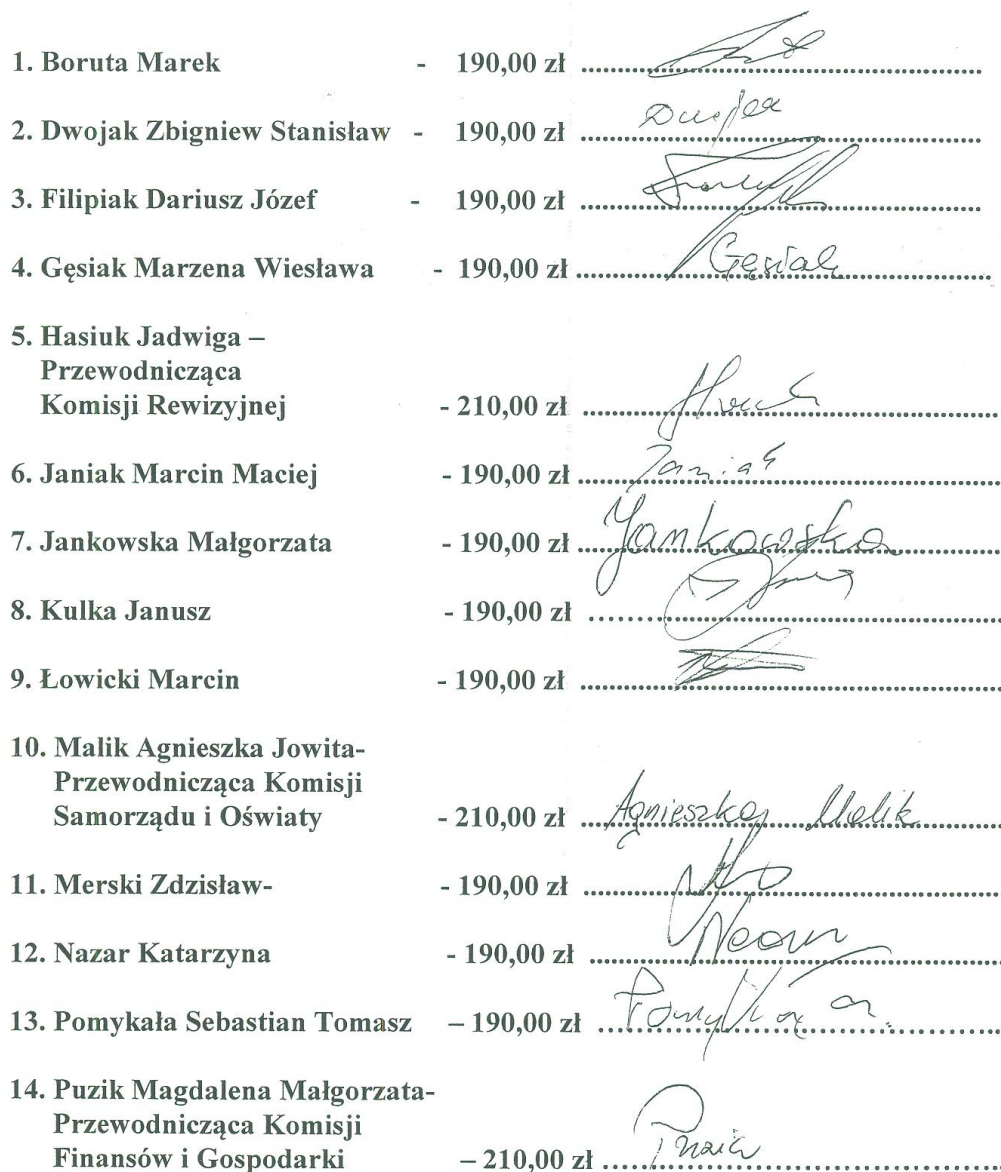 1. Boruta Marek - 190,00 zł ........................
2. Dwojak Zbigniew Stanisław - 190,00 zł ........................
3. Filipiak Dariusz Józef - 190,00 zł ........................
4. Gęsiak Marzena Wiesława - 190,00 zł ........................ Gęsiak
5. Hasiuk Jadwiga –
Przewodnicząca
Komisji Rewizyjnej - 210,00 zł ........................
6. Janiak Marcin Maciej - 190,00 zł ........................ Janiak
7. Jankowska Małgorzata - 190,00 zł ........................ Jankowska
8. Kulka Janusz - 190,00 zł ........................
9. Łowicki Marcin - 190,00 zł ........................
10. Malik Agnieszka Jowita-
Przewodnicząca Komisji
Samorządu i Oświaty - 210,00 zł ........................ Agnieszka Malik
11. Merski Zdzisław- - 190,00 zł ........................
12. Nazar Katarzyna - 190,00 zł ........................
13. Pomykała Sebastian Tomasz – 190,00 zł ........................
14. Puzik Magdalena Małgorzata-
Przewodnicząca Komisji
Finansów i Gospodarki – 210,00 zł ........................